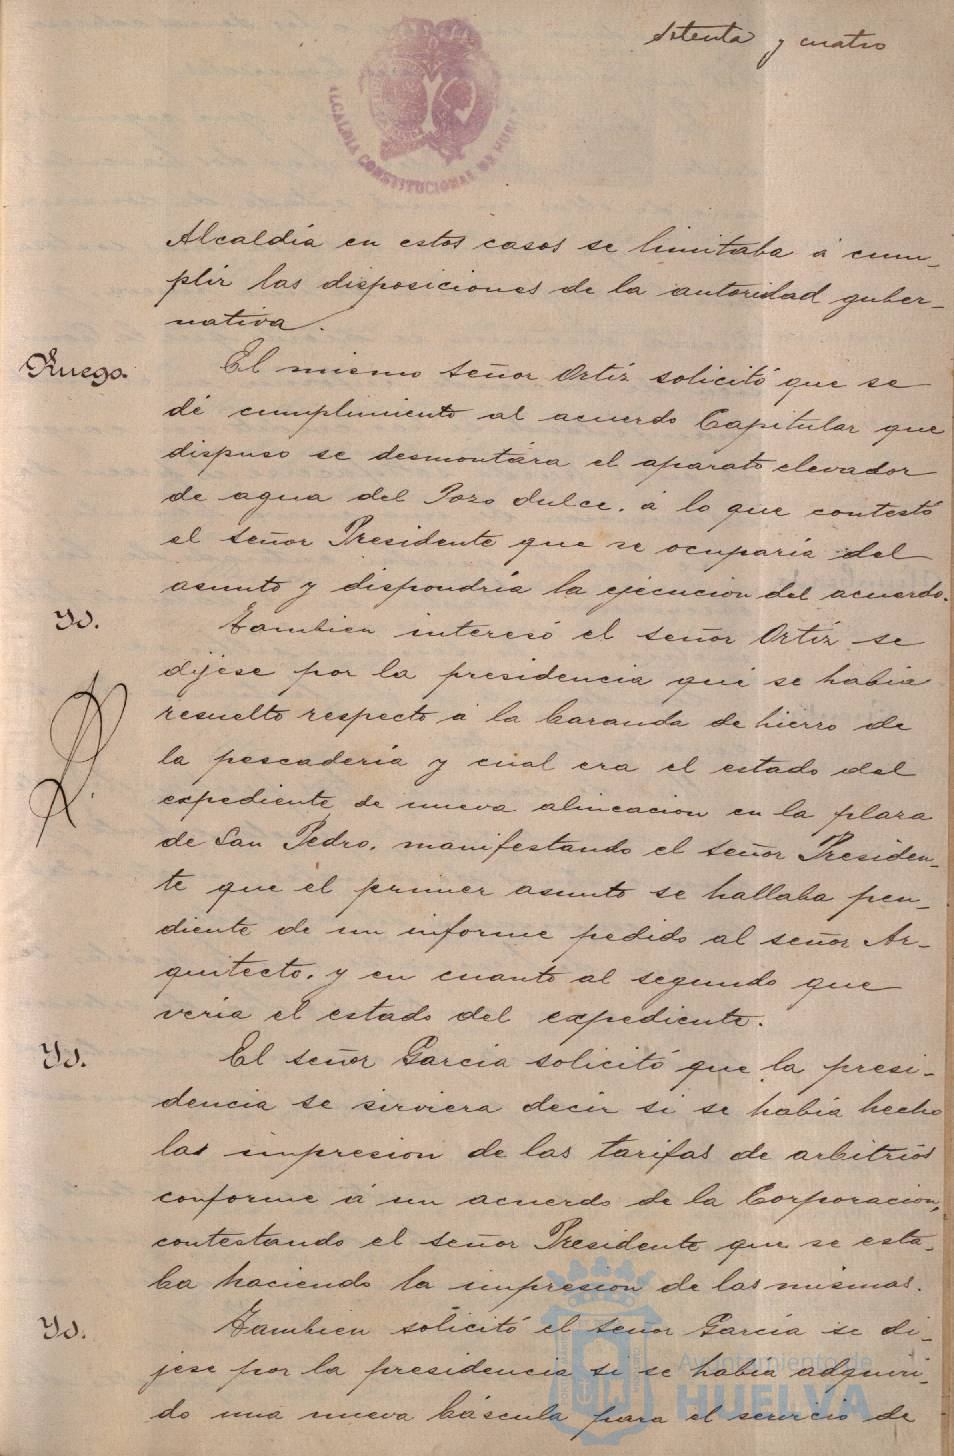 Setenta y cuatro
ALCALDIA CONSTITUCIONAL DE
Alcaldía en estos casos se limitaba á cum-
plir las disposiciones de la autoridad guber-
nativa.
Ruego.
El mismo señor Ortiz solicitó que se
dé cumplimiento al acuerdo Capitular que
dispuso se desmontára el aparato elevador
de agua del Pozo dulce. á lo que contestó
el señor Presidente que se ocuparía del
asunto y dispondría la ejecucion del acuerdo.
Yd.
Tambien interesó el señor Ortiz se
dijese por la presidencia que se habia
resuelto respecto á la baranda de hierro de
la pescadería y cual era el estado del
expediente de nueva alineacion en la plaza
de San Pedro. manifestando el señor Presiden-
te que el primer asunto se hallaba pen-
diente de un informe pedido al señor Ar-
quitecto. y en cuanto al segundo que
veria el estado del expediente.
Yd.
El señor García solicitó que la presi-
dencia se sirviera decir si se había hecho
las impresion de las tarifas de arbitrios
conforme á un acuerdo de la Corporacion,
contestando el señor Presidente que se esta-
ba haciendo la impresion de las mismas.
Yd.
Tambien solicitó el señor García se di-
jese por la presidencia si se había adquiri-
do una nueva báscula para el servicio de
Ayuntamiento de
HUELVA